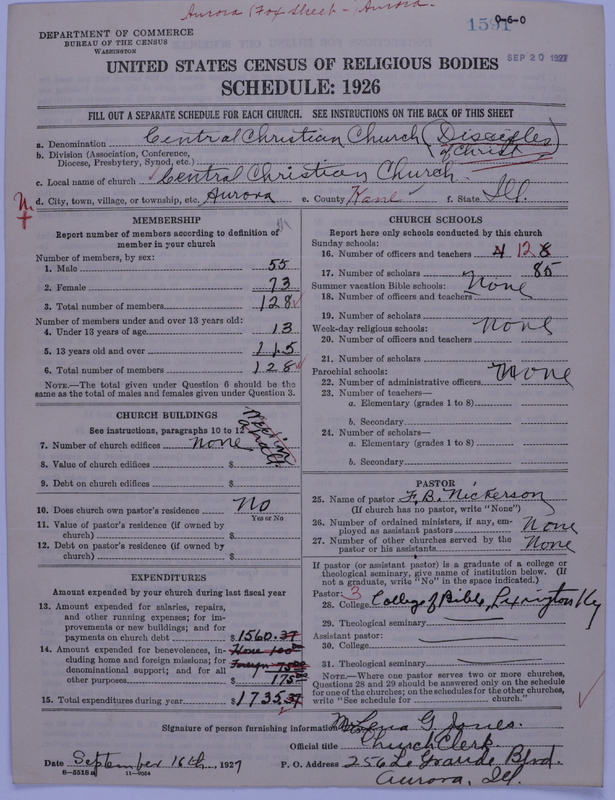 Aurora (Fox Street - Aurora.
DEPARTMENT OF COMMERCE
BUREAU OF THE CENSUS
WASHINGTON
1591
0-6-0
SEP 20 1927
UNITED STATES CENSUS OF RELIGIOUS BODIES
SCHEDULE: 1926
FILL OUT A SEPARATE SCHEDULE FOR EACH CHURCH. SEE INSTRUCTIONS ON THE BACK OF THIS SHEET
a. Denomination Central Christian Church (Disciples of Christ)
b. Division (Association, Conference, Diocese, Presbytery, Synod, etc.)
c. Local name of church Central Christian Church.
d. City, town, village, or township, etc. Aurora e. County Kane f. State Ill.
MEMBERSHIP
Report number of members according to definition of
member in your church
Number of members, by sex:
1. Male 55
2. Female 73
3. Total number of members 128
Number of members under and over 13 years old:
4. Under 13 years of age 13
5. 13 years old and over 115
6. Total number of members 128
NOTE.—The total given under Question 6 should be the
same as the total of males and females given under Question 3.
CHURCH BUILDINGS
See instructions, paragraphs 10 to 12
7. Number of church edifices none
8. Value of church edifices $
9. Debt on church edifices $
10. Does church own pastor's residence No
Yes or No
11. Value of pastor's residence (if owned by
church) $
12. Debt on pastor's residence (if owned by
church) $
EXPENDITURES
Amount expended by your church during last fiscal year
13. Amount expended for salaries, repairs,
and other running expenses; for im-
provements or new buildings; and for
payments on church debt $1560.37
14. Amount expended for benevolences, in-
cluding home and foreign missions; for
denominational support; and for all
other purposes $ 175
Home 100
Foreign 75
15. Total expenditures during year $1735.37
CHURCH SCHOOLS
Report here only schools conducted by this church
Sunday schools:
16. Number of officers and teachers 12
17. Number of scholars 85
Summer vacation Bible schools: None
18. Number of officers and teachers
19. Number of scholars
Week-day religious schools: None
20. Number of officers and teachers
21. Number of scholars
Parochial schools: None
22. Number of administrative officers
23. Number of teachers—
a. Elementary (grades 1 to 8)
b. Secondary
24. Number of scholars—
a. Elementary (grades 1 to 8)
b. Secondary
PASTOR
25. Name of pastor F. B. Nickerson
(If church has no pastor, write "None")
26. Number of ordained ministers, if any, em-
ployed as assistant pastors None
27. Number of other churches served by the
pastor or his assistants None
If pastor (or assistant pastor) is a graduate of a college or
theological seminary, give name of institution below. (If
not a graduate, write "No" in the space indicated.)
Pastor: 3
28. College College of Bible, Lexington Ky
29. Theological seminary
Assistant pastor:
30. College
31. Theological seminary
NOTE.—Where one pastor serves two or more churches,
Questions 28 and 29 should be answered only on the schedule
for one of the churches; on the schedules for the other churches,
write "See schedule for church."
Signature of person furnishing information Mrs Lena G. Jones.
Official title Church Clerk.
Date September 16th, 1927 P. O. Address 256 Le Grande Blvd.
8—5518a 11—9054
Aurora, Ill.